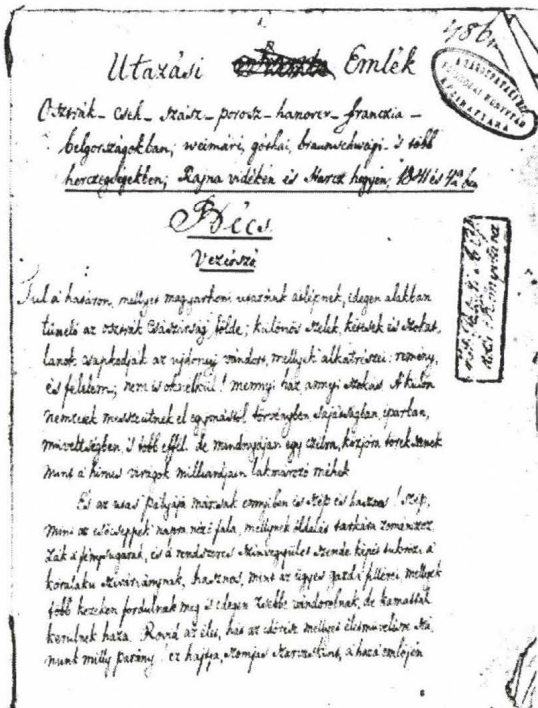 1.
486
Utazási Emlék
A SÁROSPATAKI REF.
FŐISKOLAI KÖNYVTÁR
KÉZIRATTÁRA
Osztrák – cseh – szász – porosz – hanover – franczia –
belgországokban; weimári, gothai, braunschwägi – 's több
herczegségekben; Rajna vidéken és Harcz hegyen; 1841 és 42ben
Bécs.
Vezérszó
Túl a határon, mellyet magyarhoni utazónk átlépnek, idegen alakban
tűnik az osztrák császárság földe; különös szelek, kétesek és szokat,
lanok csapkodják az ujdonnyi vándort, mellyek alkatrészei: remény,
és félelem; nem is ok nélkül! mennyi ház annyi szokás. A külön
nemzetek messzeütnek el egymástól törvényben sajátságban, iparban,
műveltségben, 's több effél. de mindnyájan egy czélra, közjóra törekszenek
mint a himes virágok milliárdjain lakmározó méhek
És az utas pályája már csak ennyiben is szép és hasznos! szép,
mint az esőcseppek napra néző fala, mellynek oldalás tarkára zománczoz
zák a fénysugarak, és a rendszeres színvegyület szende képét tükrözi a
köralaku szivárványnak, hasznos, mint az ügyes gazda fillérei, mellyek
több kezeken fordulnak meg is idegen zsebbe vándorolnak, de kamatták
kerülnek haza. Rövid az élet, hát az időrész mellyet
nunk milly parány! ez hajtja, szomjas a haza emlőjén